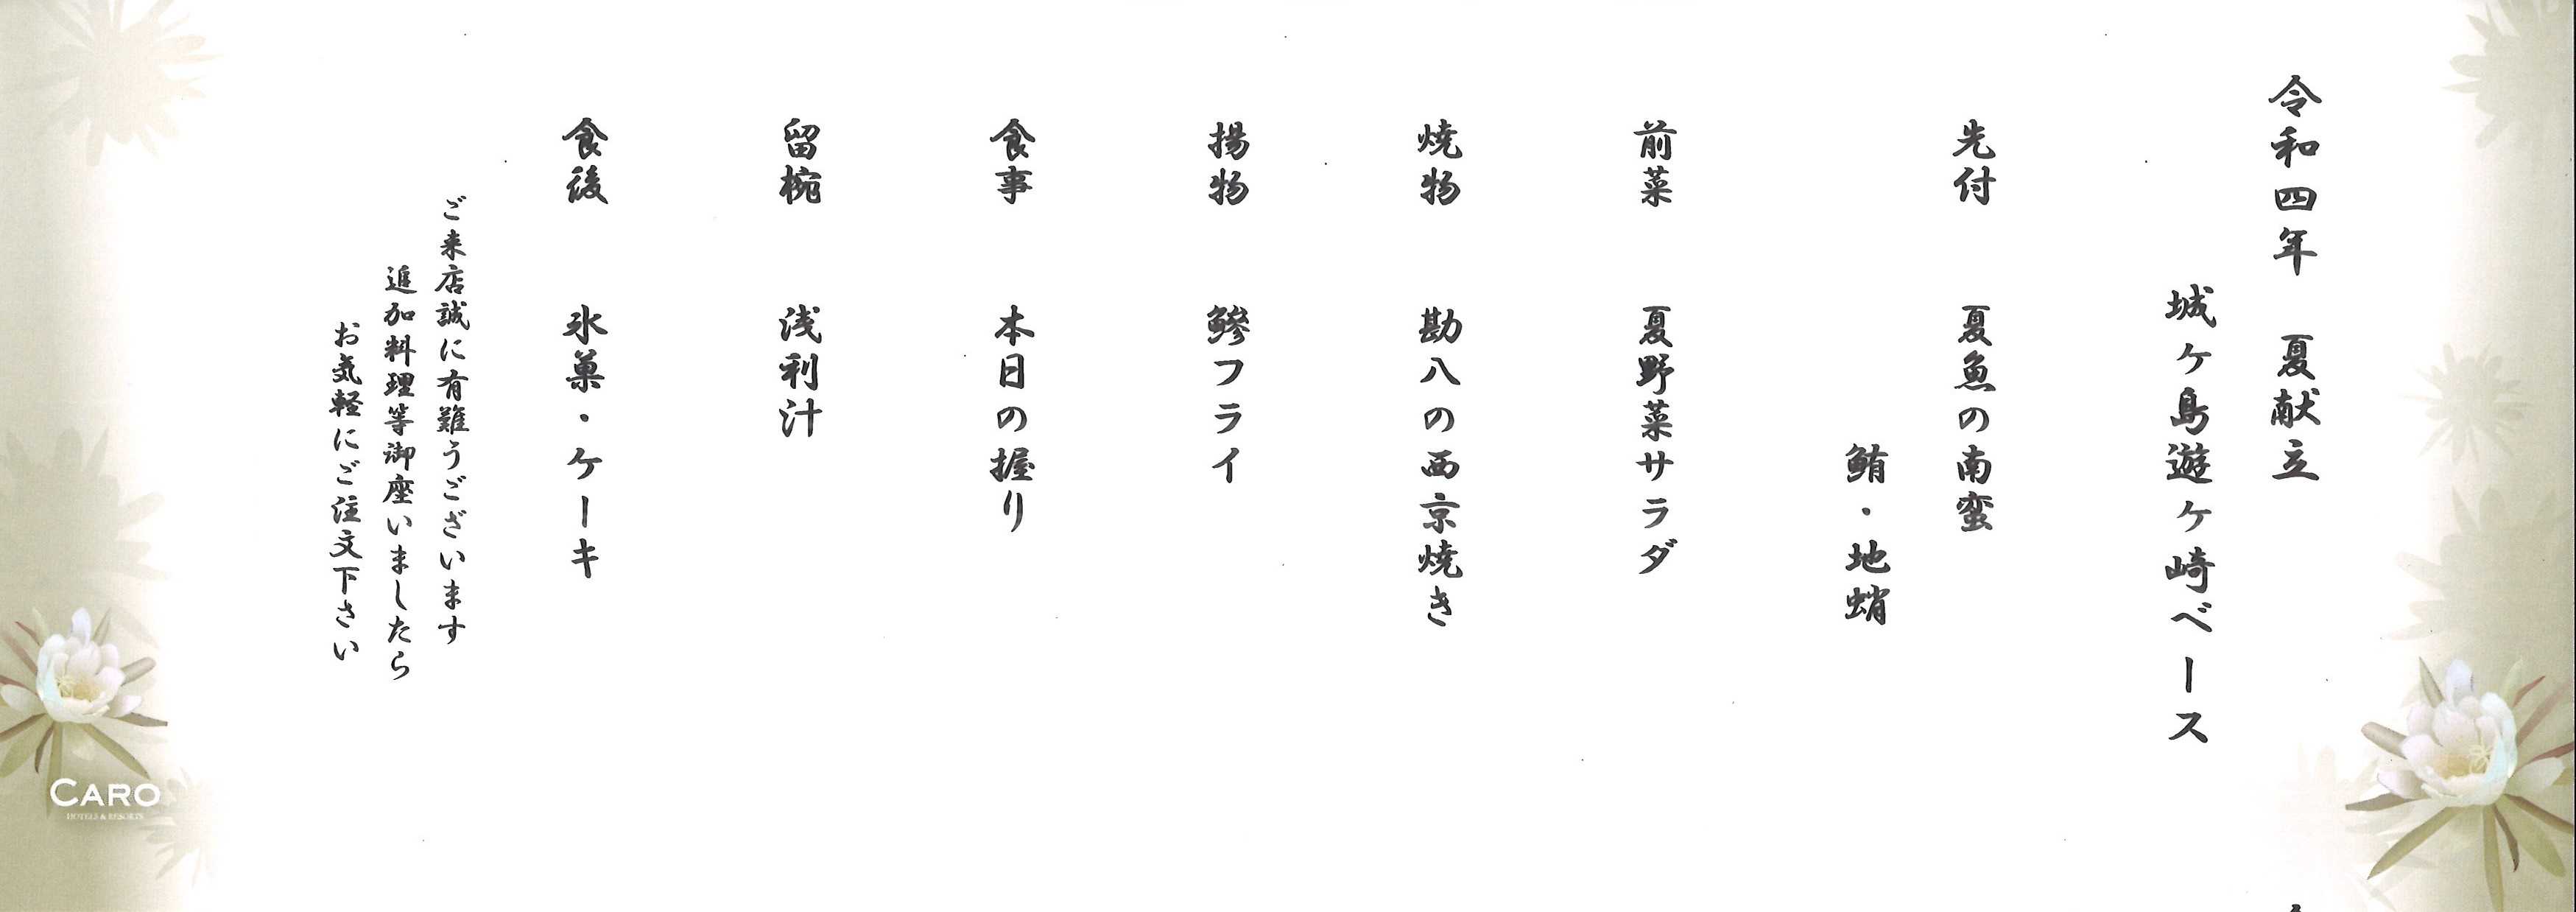 令和四年　夏献立
城ヶ島遊ヶ崎ベース
先付　夏魚の南蛮
鮪・地蛸
前菜　夏野菜サラダ
焼物　勘八の西京焼き
揚物　鰺フライ
食事　本日の握り
留椀　浅利汁
食後　氷菓・ケーキ
ご来店誠に有難うございます
追加料理等御座いましたら
お気軽にご注文下さい
CARO
HOTELS & RESORTS